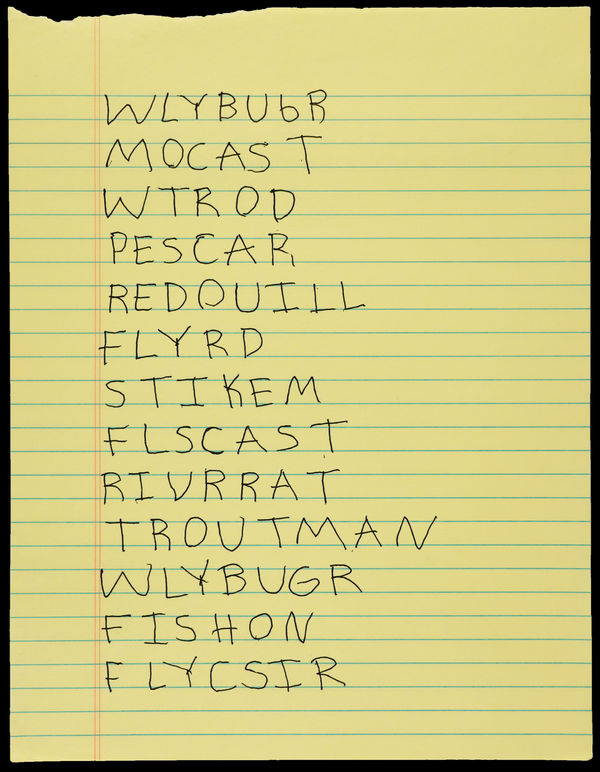 WLYBUbR
MOCAST
WTROD
PESCAR
REDQUILL
FLYRD
STIKEM
FLSCAST
RIVRRAT
TROUTMAN
WLYBUGR
FISHON
FLYCSTR